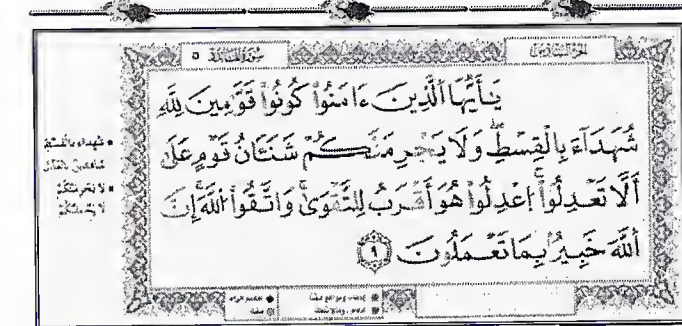 سُورَةُ المَائِدَة ٥
الجزء السَّادِس
يَٰٓأَيُّهَا ٱلَّذِينَ ءَامَنُوا۟ كُونُوا۟ قَوَّٰمِينَ لِلَّهِ
شُهَدَآءَ بِٱلْقِسْطِ ۖ وَلَا يَجْرِمَنَّكُمْ شَنَـَٔانُ قَوْمٍ عَلَىٰٓ
أَلَّا تَعْدِلُوا۟ ۚ ٱعْدِلُوا۟ هُوَ أَقْرَبُ لِلتَّقْوَىٰ ۖ وَٱتَّقُوا۟ ٱللَّهَ ۚ إِنَّ
ٱللَّهَ خَبِيرٌۢ بِمَا تَعْمَلُونَ ٩
• شُهَداءَ بالْقِسْطِ
شاهدين بالعدل
• لا يَجْرِمَنَّكُمْ
لا يَحْمِلَنَّكُمْ